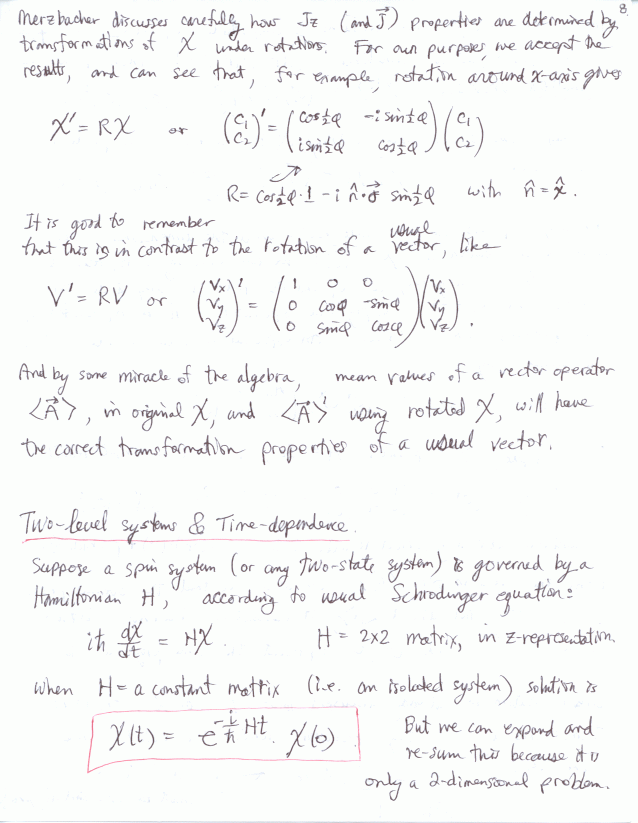 8
Merzbacher discusses carefully how Jz (and J⃗) properties are determined by
transformations of χ under rotations. For our purposes, we accept the
results, and can see that, for example, rotation around x-axis gives
χ' = Rχ or (c₁ c₂)' = (cos½φ -i sin½φ i sin½φ cos½φ)(c₁ c₂)
R = cos½φ·1 - i n̂·σ⃗ sin½φ with n̂ = x̂.
It is good to remember
that this is in contrast to the rotation of a usual vector, like
V' = RV or (Vx Vy Vz)' = (1 0 0 0 cosφ -sinφ 0 sinφ cosφ)(Vx Vy Vz).
And by some miracle of the algebra, mean values of a vector operator
⟨A⃗⟩, in original χ, and ⟨A⃗⟩' using rotated χ, will have
the correct transformation properties of a usual vector.
Two-level systems & Time-dependence.
Suppose a spin system (or any two-state system) is governed by a
Hamiltonian H, according to usual Schrodinger equation:
iħ dχ/dt = Hχ. H = 2x2 matrix, in z-representation.
When H = a constant matrix (i.e. an isolated system) solution is
χ(t) = e^(-i/ħ Ht) · χ(0) But we can expand and
re-sum this because it is
only a 2-dimensional problem.